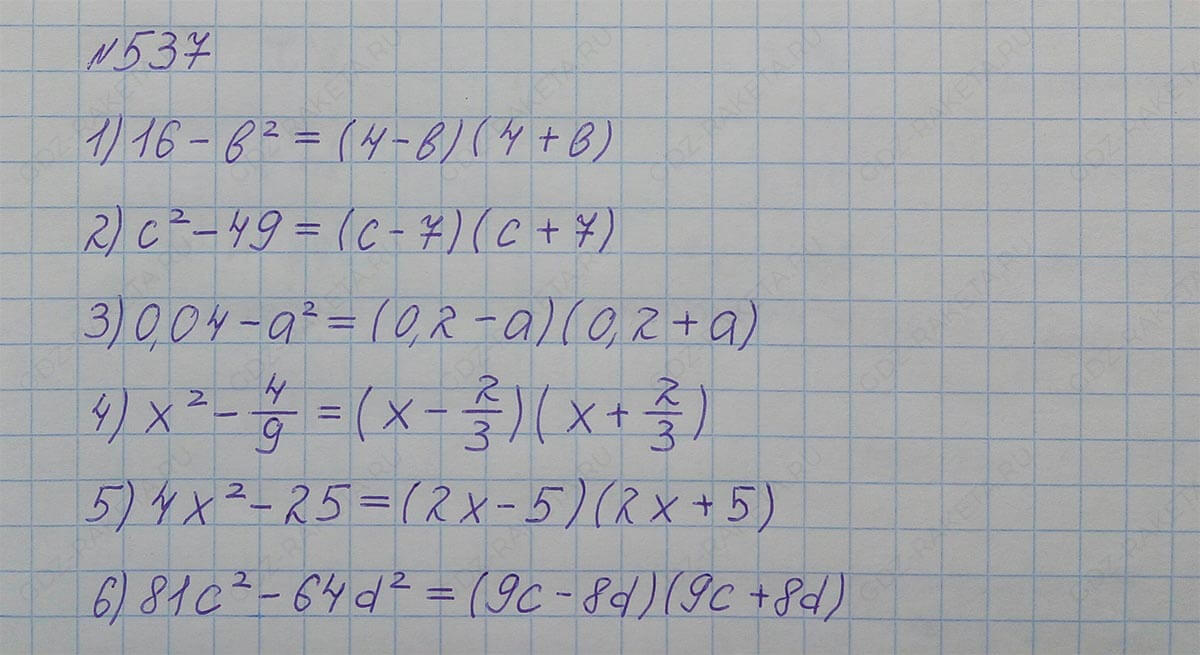 №537
1) 16 - в² = (4 - в)(4 + в)
2) c² - 49 = (c - 7)(c + 7)
3) 0,04 - a² = (0,2 - a)(0,2 + a)
4) x² - 4/9 = (x - 2/3)(x + 2/3)
5) 4x² - 25 = (2x - 5)(2x + 5)
6) 81c² - 64d² = (9c - 8d)(9c + 8d)
GDZ-RAKETA.RU